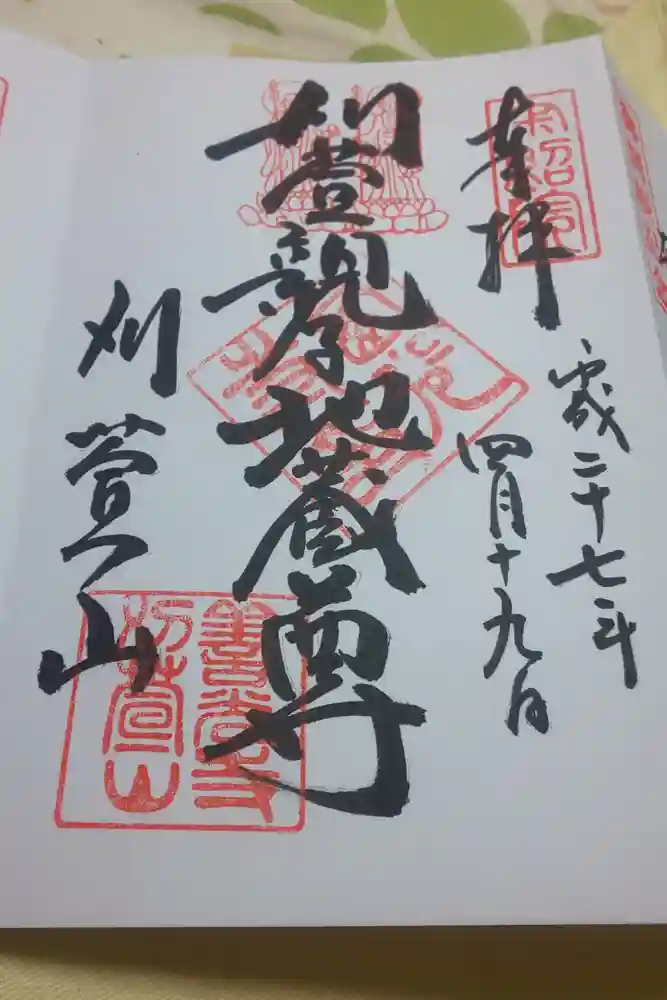 奉拝
平成二十七年
四月十九日
刈萱親子地蔵尊
刈萱山
善光寺